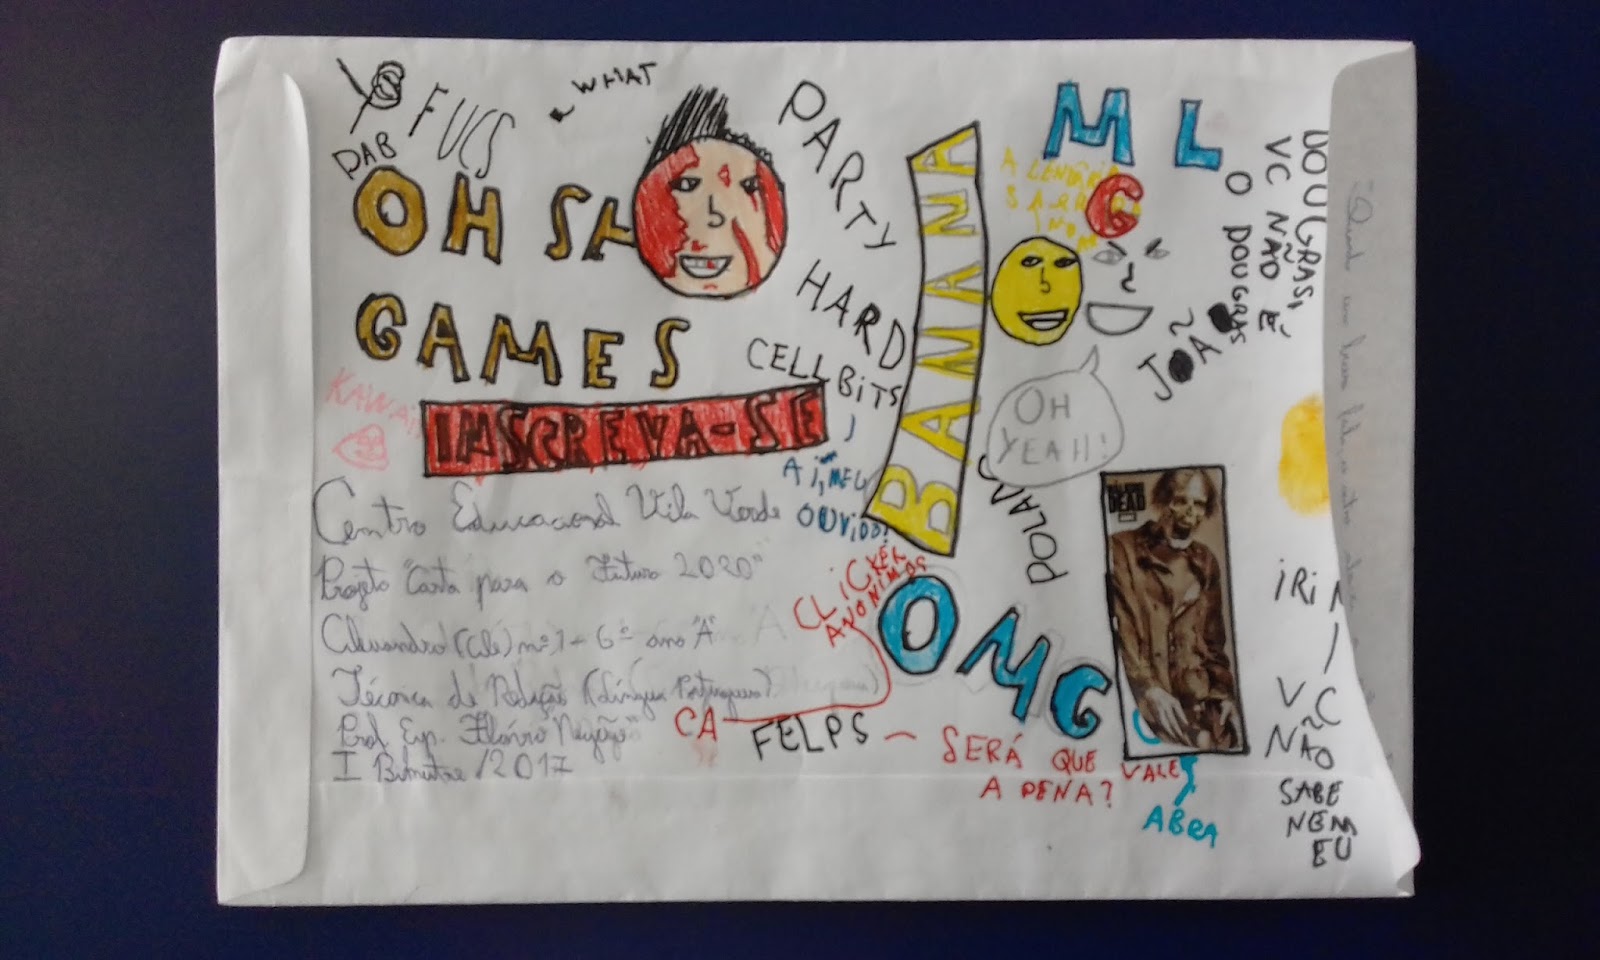 DAB
FUCS
WHAT
OH SH
GAMES
KAWAII
INSCREVA-SE
PARTY
HARD
CELLBITS
AI, MEU
OUVIDO!
BANANA
M L
G
A LENDÁRIA
OH
YEAH!
JOÃO
DOUGRAS,
VC NÃO É
O DOUGRAS
DEAD
Centro Educacional Vila Verde
Projeto "Carta para o Futuro 2020"
(Alê) nº 1 - 6º ano "A"
Técnica de Redação (Língua Portuguesa)
Prof. Esp. Flávio
I Bimestre/2017
CLICKER
ANONIMOS
CA
FELPS - SERÁ QUE VALE
A PENA?
OMG
ABRA
IRINI
VC
NÃO
SABE
NEM
EU